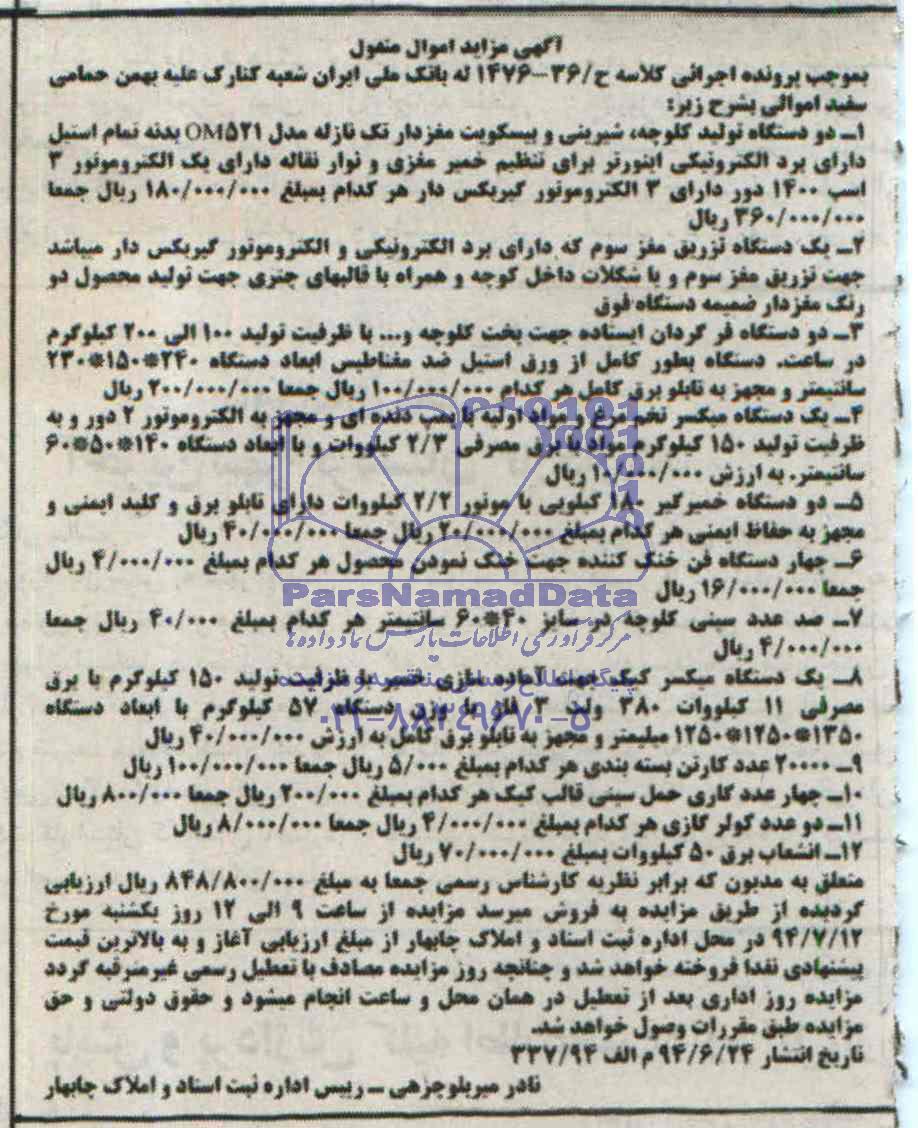 آگهی مزاید اموال منقول
بموجب پرونده اجرائی کلاسه ح/۳۶-۱۴۷۶ له بانک ملی ایران شعبه کنارک علیه بهمن حمامی
سفید اموالی بشرح زیر:
۱ـ دو دستگاه تولید کلوچه، شیرینی و بیسکویت مغزدار تک نازله مدل OM۵۲۱ بدنه تمام استیل
دارای برد الکترونیکی اینورتر برای تنظیم خمیر مغزی و نوار نقاله دارای یک الکتروموتور ۳
اسب ۱۴۰۰ دور دارای ۳ الکتروموتور گیربکس دار هر کدام بمبلغ ۱۸۰/۰۰۰/۰۰۰ ریال جمعا
۳۶۰/۰۰۰/۰۰۰ ریال
۲ـ یک دستگاه تزریق مغز سوم که دارای برد الکترونیکی و الکتروموتور گیربکس دار میباشد
جهت تزریق مغز سوم و یا شکلات داخل کوچه و همراه با قالبهای چتری جهت تولید محصول دو
رنگ مغزدار ضمیمه دستگاه فوق
۳ـ دو دستگاه فر گردان ایستاده جهت پخت کلوچه و... با ظرفیت تولید ۱۰۰ الی ۲۰۰ کیلوگرم
در ساعت. دستگاه بطور کامل از ورق استیل ضد مغناطیس ابعاد دستگاه ۲۴۰*۱۵۰*۲۳۰
سانتیمتر و مجهز به تابلو برق کامل هر کدام ۱۰۰/۰۰۰/۰۰۰ ریال جمعا ۲۰۰/۰۰۰/۰۰۰ ریال
۴ـ یک دستگاه میکسر تخم مرغ و مواد اولیه با پمپ دنده ای و مجهز به الکتروموتور ۲ دور و به
ظرفیت تولید ۱۵۰ کیلوگرم مواد با برق مصرفی ۲/۳ کیلووات و با ابعاد دستگاه ۱۴۰*۵۰*۶۰
سانتیمتر. به ارزش ۱۰/۰۰۰/۰۰۰ ریال
۵ـ دو دستگاه خمیرگیر ۱۸۰ کیلویی با موتور ۲/۲ کیلووات دارای تابلو برق و کلید ایمنی و
مجهز به حفاظ ایمنی هر کدام بمبلغ ۲۰/۰۰۰/۰۰۰ ریال جمعا ۴۰/۰۰۰/۰۰۰ ریال
۶ـ چهار دستگاه فن خنک کننده جهت خنک نمودن محصول هر کدام بمبلغ ۴/۰۰۰/۰۰۰ ریال
جمعا ۱۶/۰۰۰/۰۰۰ ریال
ParsNamadData
۷ـ صد عدد سینی کلوچه در سایز ۴۰*۶۰ سانتیمتر هر کدام بمبلغ ۴۰/۰۰۰ ریال جمعا
۴/۰۰۰/۰۰۰ ریال
مرکز فرآوری اطلاعات پارس نماد داده ها
۸ـ یک دستگاه میکسر کیک جهت آماده سازی خمیر با ظرفیت تولید ۱۵۰ کیلوگرم با برق
مصرفی ۱۱ کیلووات ۳۸۰ ولت ۳ فاز با وزن دستگاه ۵۷ کیلوگرم با ابعاد دستگاه
۰۲۱-۸۸۳۴۹۶۷۰-۵
۱۳۵۰*۱۲۵۰*۱۲۵۰ میلیمتر و مجهز به تابلو برق کامل به ارزش ۴۰/۰۰۰/۰۰۰ ریال
۹ـ ۲۰۰۰۰ عدد کارتن بسته بندی هر کدام بمبلغ ۵/۰۰۰ ریال جمعا ۱۰۰/۰۰۰/۰۰۰ ریال
۱۰ـ چهار عدد گاری حمل سینی قالب کیک هر کدام بمبلغ ۲۰۰/۰۰۰ ریال جمعا ۸۰۰/۰۰۰ ریال
۱۱ـ دو عدد کولر گازی هر کدام بمبلغ ۴/۰۰۰/۰۰۰ ریال جمعا ۸/۰۰۰/۰۰۰ ریال
۱۲ـ انشعاب برق ۵۰ کیلووات بمبلغ ۷۰/۰۰۰/۰۰۰ ریال
متعلق به مدیون که برابر نظریه کارشناس رسمی جمعا به مبلغ ۸۴۸/۸۰۰/۰۰۰ ریال ارزیابی
گردیده از طریق مزایده به فروش میرسد مزایده از ساعت ۹ الی ۱۲ روز یکشنبه مورخ
۹۴/۷/۱۲ در محل اداره ثبت اسناد و املاک چابهار از مبلغ ارزیابی آغاز و به بالاترین قیمت
پیشنهادی نقدا فروخته خواهد شد و چنانچه روز مزایده مصادف با تعطیل رسمی غیرمترقبه گردد
مزایده روز اداری بعد از تعطیل در همان محل و ساعت انجام میشود و حقوق دولتی و حق
مزایده طبق مقررات وصول خواهد شد.
تاریخ انتشار ۹۴/۶/۲۴ م الف ۳۳۷/۹۴
نادر میربلوچزهی ـ رییس اداره ثبت اسناد و املاک چابهار